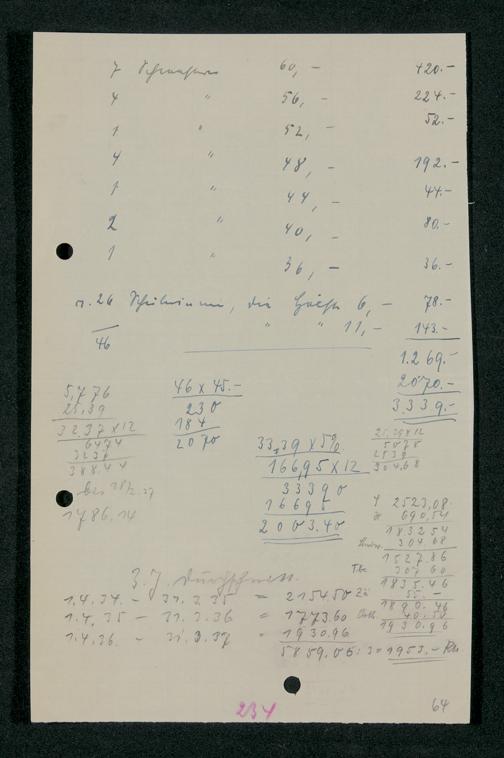 7 60,- 420.-
4 " 56,- 224.-
1 " 52,- 52.-
4 " 48,- 192.-
1 " 44,- 44.-
2 " 40,- 80.-
1 " 36,- 36.-
26 Schülerinnen, die Hälfte 6,- 78.-
46 " " 11,- 143.-
1.269.-
2070.-
3.339.-
5,776
25,39
32.37 x 12
6474
3237
388.44
1786.14
46 x 45.-
230
184
2070
33,39 x 5%
166,95 x 12
33390
16695
2003.40
25,39 x 12
5078
2539
304,68
2523,08
690,54
183254
30468
152786
30760
1835.46
55.-
1890.46
40.50
1930.96
3 J. Durchschnitt
1.4.34. - 31.3.35 = 215450
1.4.35 - 31.3.36 = 1773.60
1.4.36. - 31.3.37 = 1930.96
5859.06 : 3 = 1953.- RM
234
64